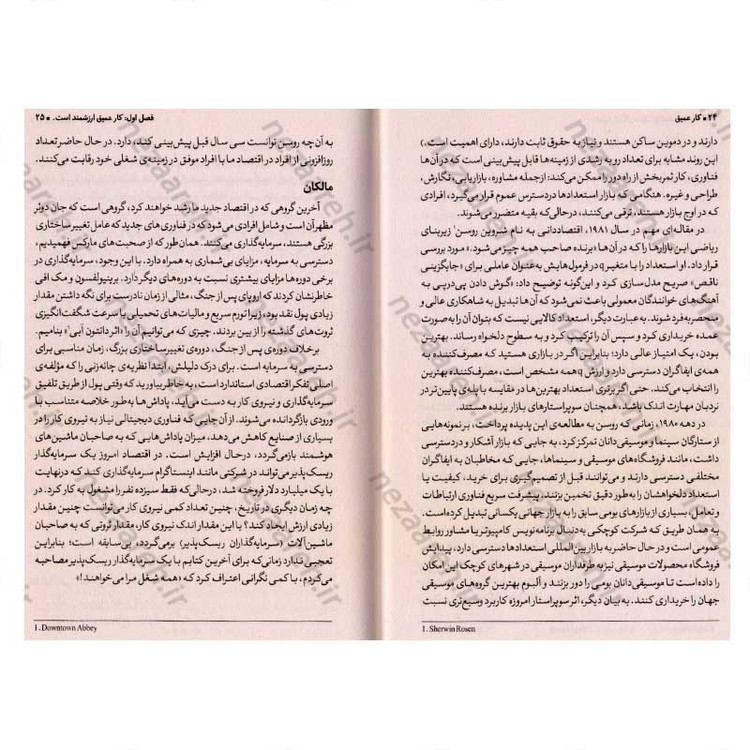 ۲۴ ■ کار عمیق
دارند و در دموین ساکن هستند و نیاز به حقوق ثابت دارند، دارای اهمیت است.)
این روند مشابه برای تعداد رو به رشدی از زمینه‌ها قابل پیش‌بینی است که در آن‌ها
فناوری، کار ثمربخش از راه دور را ممکن می‌کند: ازجمله مشاوره، بازاریابی، نگارش،
طراحی و غیره. هنگامی که بازار استعدادها دردسترس عموم قرار می‌گیرد، افرادی
که در اوج بازار هستند، ترقی می‌کنند، درحالی‌که بقیه متضرر می‌شوند.
در مقاله‌ای مهم در سال ۱۹۸۱، اقتصاددانی به نام شروین روسن¹ زیربنای
ریاضی این بازارها را که در آن‌ها «برنده صاحب همه چیز می‌شود»، مورد بررسی
قرار داد. او استعداد را با متغیر q در فرمول‌هایش به‌عنوان عاملی برای «جایگزینی
ناقص» صریح مدل‌سازی کرد و این‌گونه توضیح داد: «گوش دادن پی‌درپی به
آهنگ‌های خوانندگان معمولی باعث نمی‌شود که آن‌ها تبدیل به شاهکاری عالی و
منحصربه‌فرد شوند. به عبارت دیگر، استعداد کالایی نیست که بتوان آن را به‌صورت
عمده خریداری کرد و سپس آن را ترکیب کرد و به سطوح دلخواه رساند. بهترین
بودن، یک امتیاز عالی دارد؛ بنابراین اگر در بازاری هستید که مصرف‌کننده به
همه‌ی ایفاگران دسترسی دارد و ارزش q همه مشخص است، مصرف‌کننده بهترین
را انتخاب می‌کند. حتی اگر برتری استعداد بهترین‌ها در مقایسه با پله‌ی پایین‌تر در
نردبان مهارت اندک باشد، همچنان سوپراستارهای بازار برنده هستند.
در دهه ۱۹۸۰، زمانی که روسن به مطالعه‌ی این پدیده پرداخت، بر نمونه‌هایی
از ستارگان سینما و موسیقی‌دانان تمرکز کرد، به جایی که بازار آشکار و دردسترسی
داشت، مانند فروشگاه‌های موسیقی و سینماها، جایی که مخاطبان به ایفاگران
مختلفی دسترسی دارند و می‌توانند قبل از تصمیم‌گیری برای خرید، کیفیت یا
استعداد دلخواهشان را به‌طور دقیق تخمین بزنند. پیشرفت سریع فناوری ارتباطات
و تعامل، بسیاری از بازارهای بومی سابق را به بازار جهانی یکسانی تبدیل کرده است.
به همان طریق که شرکت کوچکی به‌دنبال برنامه‌نویس کامپیوتر یا مشاور روابط
عمومی است و در حال حاضر به بازار بین‌المللی استعدادها دسترسی دارد، پیدایش
فروشگاه محصولات موسیقی نیز به طرفداران موسیقی در شهرهای کوچک این امکان
را داده است تا موسیقی‌دانان بومی را دور بزنند و آلبوم بهترین گروه‌های موسیقی
جهان را خریداری کنند. به بیان دیگر، اثر سوپراستار امروزه کاربرد وسیع‌تری نسبت
1. Sherwin Rosen
فصل اول: کار عمیق ارزشمند است. ■ ۲۵
به آن‌چه روسن توانست سی سال قبل پیش‌بینی کند، دارد. در حال حاضر تعداد
روزافزونی از افراد در اقتصاد ما با افراد موفق در زمینه‌ی شغلی خود رقابت می‌کنند.
مالکان
آخرین گروهی که در اقتصاد جدید ما رشد خواهند کرد، گروهی است که جان دوئر
مظهر آن است و شامل افرادی می‌شود که در فناوری‌های جدید که عامل تغییر ساختاری
بزرگی هستند، سرمایه‌گذاری می‌کنند. همان‌طور که از صحبت‌های مارکس فهمیدیم،
دسترسی به سرمایه، مزایای بی‌شماری به همراه دارد. با این وجود، سرمایه‌گذاری در
برخی دوره‌ها مزایای بیشتری نسبت به دوره‌های دیگر دارد. برینیولفسون و مک افی
خاطرنشان کردند که اروپای پس از جنگ، مثالی از زمان نادرست برای نگه داشتن مقدار
زیادی پول نقد بود، زیرا تورم سریع و مالیات‌های تحمیلی با سرعت شگفت‌انگیزی
ثروت‌های گذشته را از بین بردند. چیزی که می‌توانیم آن را «اثر داانتون آبی¹» بنامیم.
برخلاف دوره‌ی پس از جنگ، دوره‌ی تغییر ساختاری بزرگ، زمان مناسبی برای
دسترسی به سرمایه است. برای درک دلیلش، ابتدا نظریه‌ی چانه‌زنی را که مؤلفه‌ی
اصلی تفکر اقتصادی استاندارد است، به خاطر بیاورید که وقتی پول از طریق تلفیق
سرمایه‌گذاری و نیروی کار به دست می‌آید، پاداش‌ها به‌طور خلاصه متناسب با
ورودی بازگردانده می‌شوند. از آن جایی که فناوری دیجیتالی نیاز به نیروی کار را در
بسیاری از صنایع کاهش می‌دهد، میزان پاداش‌هایی که به صاحبان ماشین‌های
هوشمند بازمی‌گردد، درحال افزایش است. در اقتصاد امروز یک سرمایه‌گذار
ریسک‌پذیر می‌تواند در شرکتی مانند اینستاگرام سرمایه‌گذاری کند که درنهایت
با یک میلیارد دلار فروخته شد، درحالی‌که فقط سیزده نفر را مشغول به کار کرد. در
چه زمان دیگری در تاریخ، چنین تعداد کمی نیروی کار می‌توانست چنین مقدار
زیادی ارزش ایجاد کند؟ با این مقدار اندک نیروی کار، مقدار ثروتی که به صاحبان
ماشین‌آلات (سرمایه‌گذاران ریسک‌پذیر) برمی‌گردد، بی‌سابقه است؛ بنابراین
تعجبی ندارد زمانی‌که برای آخرین کتابم با یک سرمایه‌گذار ریسک‌پذیر مصاحبه
می‌کردم، با کمی نگرانی اعتراف کرد که «همه شغل مرا می‌خواهند!»
1. Downtown Abbey
nezaareh.ir